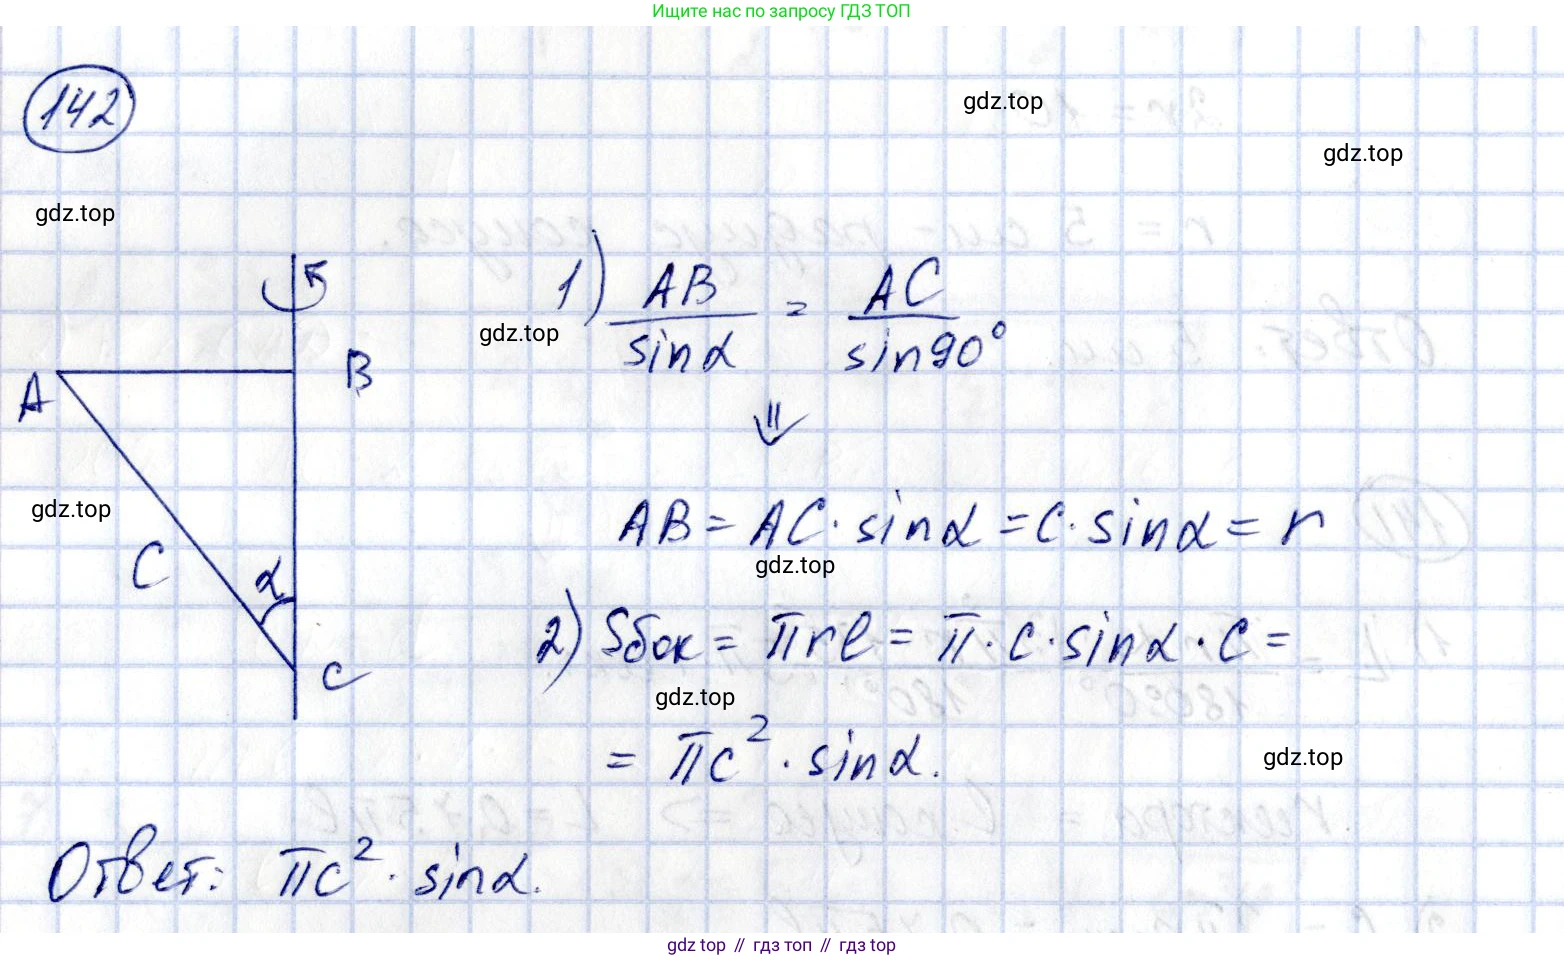 Ищите нас по запросу ГДЗ ТОП
142
gdz.top
gdz.top
gdz.top
1) AB/sinα = AC/sin90°
gdz.top
A
B
⇓
gdz.top
AB = AC · sinα = c · sinα = r
gdz.top
C
α
2) Sбок = πrl = π · c · sinα · c =
C
gdz.top
= πc² · sinα.
gdz.top
Ответ: πc² · sinα.
gdz top // гдз топ // гдз top